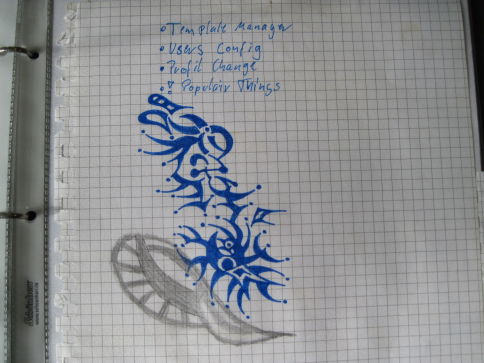 • Template Manager
• Users Config
• Profil Change
• ! Populair Things